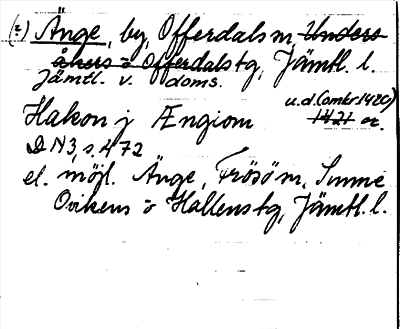 (?) Änge, by, Offerdals sn Unders-
åkers o Offerdals tg, Jämtl. l.
Jämtl. v. doms.
Hakon j Ængiom u.d. (omkr 1420)
1421 or.
DN3, s. 472
el. möjl. Änge, Frösö sn, Sunne
Ovikens o Hallens tg, Jämtl. l.